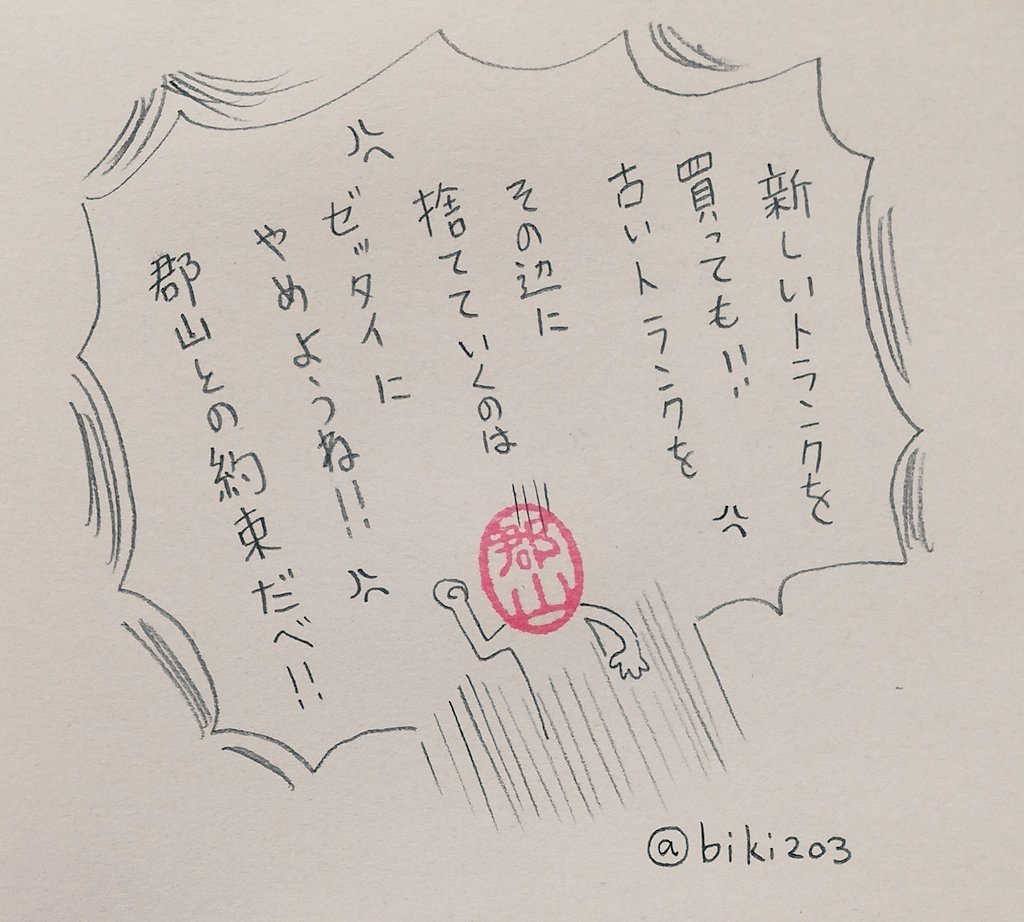 新しいトランクを
買っても!!
古いトランクを
その辺に
捨てていくのは
ゼッタイに
やめようね!!
郡山との約束だべ!!
郡山
@biki203